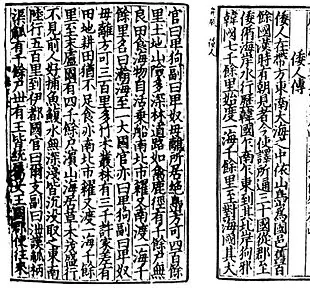 倭人傳
倭人在帶方東南大海之中依山㠀爲國邑舊百
餘國漢時有朝見者今使譯所通三十國從郡至
倭循海岸水行歷韓國乍南乍東到其北岸狗邪
韓國七千餘里始度一海千餘里至對海國其大
官曰卑狗副曰卑奴母離所居絶㠀方可四百餘
里土地山險多深林道路如禽鹿徑有千餘戸無
良田食海物自活乗船南北市糴又南渡一海千
餘里名曰瀚海至一大國官亦曰卑狗副曰卑奴
母離方可三百里多竹木叢林有三千許家差有
田地耕田猶不足食亦南北市糴又渡一海千餘
里至末盧國有四千餘戸濱山海居草木茂盛行
不見前人好捕魚鰒水無深淺皆沈没取之東南
陸行五百里到伊都國官曰爾支副曰泄謨觚柄
渠觚有千餘戸丗有王皆統屬女王國郡使往來